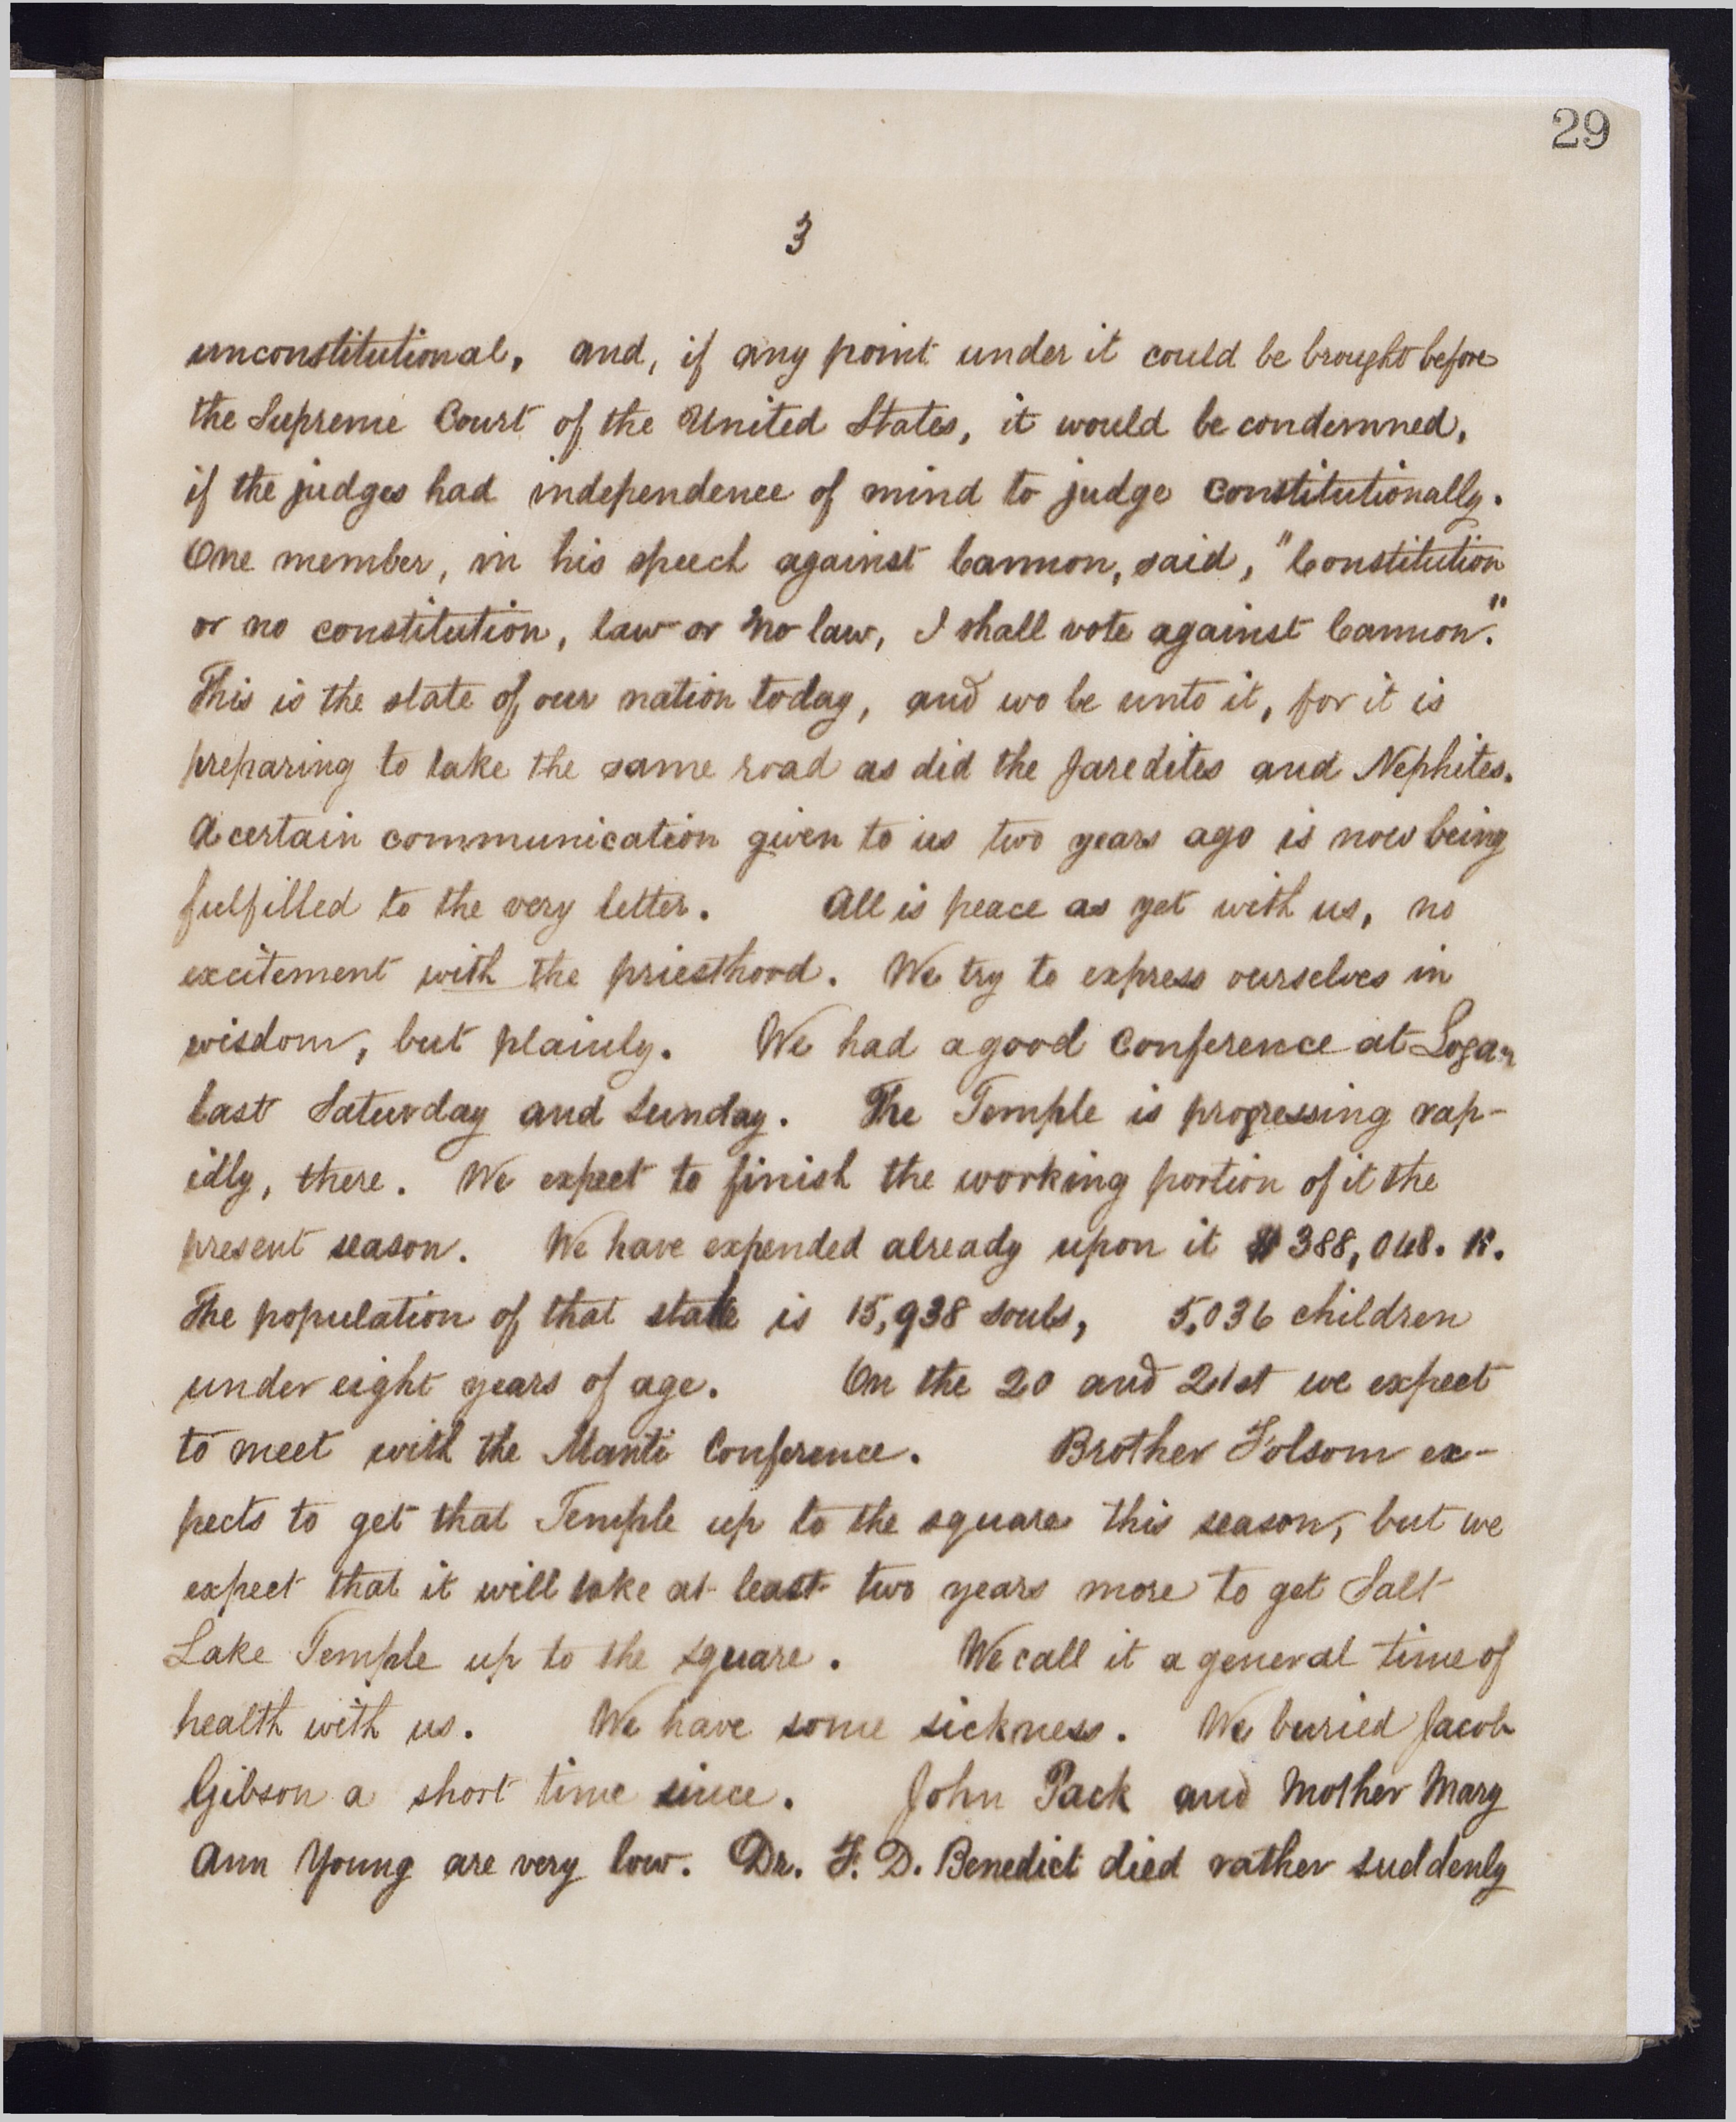 29
3
unconstitutional, and, if any point under it could be brought before
the Supreme Court of the United States, it would be condemned,
if the judges had independence of mind to judge constitutionally.
One member, in his speech against Cannon, said, "Constitution
or no constitution, law or no law, I shall vote against Cannon."
This is the state of our nation today, and wo be unto it, for it is
preparing to take the same road as did the Jaredites and Nephites.
A certain communication given to us two years ago is now being
fulfilled to the very letter. All is peace as yet with us, no
excitement with the priesthood. We try to express ourselves in
wisdom, but plainly. We had a good Conference at Logan
last Saturday and Sunday. The Temple is progressing rap-
idly, there. We expect to finish the working portion of it the
present season. We have expended already upon it $388,048.
The population of that stake is 15,938 souls, 5,036 children
under eight years of age. On the 20 and 21st we expect
to meet with the Manti Conference. Brother Folsom ex-
pects to get that Temple up to the square this season, but we
expect that it will take at least two years more to get Salt
Lake Temple up to the square. We call it a general time of
health with us. We have some sickness. We buried Jacob
Gibson a short time since. John Pack and Mother Mary
Ann Young are very low. Dr. F. D. Benedict died rather suddenly